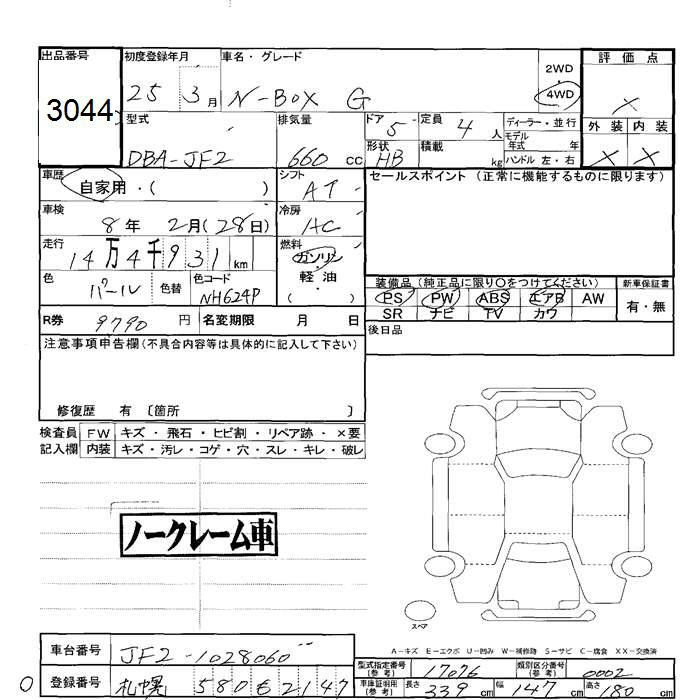 出品番号 3044
初度登録年月 25 3月
車名・グレード N-BOX G
2WD
4WD
評価点 ×
型式 DBA-JF2
排気量 660 cc
ドア 5
定員 4人
ディーラー・並行
モデル年式 年
ハンドル 左・右
形状 HB
積載 kg
外装 内装
× ×
車歴 自家用・( )
シフト AT
セールスポイント (正常に機能するものに限ります)
車検 8年 2月(28日)
冷房 AC
走行 14万4千931km
燃料 ガソリン
軽油
( ・ )
色 パール 色替
色コード NH624P
装備品(純正品に限り○をつけてください)
新車保証書
PS PW ABS エアB AW
SR ナビ TV カワ
有・無
R券 9790円
名変期限 月 日
後日品
注意事項申告欄(不具合内容等は具体的に記入して下さい)
修復歴 有 〔箇所 〕
検査員 FW キズ・飛石・ヒビ割・リペア跡・×要
記入欄 内装 キズ・汚レ・コゲ・穴・スレ・キレ・破レ
ノークレーム車
スペア
A-キズ E-エクボ U-凹み W-補修跡 S-サビ C-腐食 XX-交換済
車台番号 JF2-1028060
登録番号 札幌 580 を 2147
型式指定番号(参考) 17076
類別区分番号(参考) 0002
車庫証明用(参考) 長さ 339 cm 幅 147 cm 高さ 180 cm